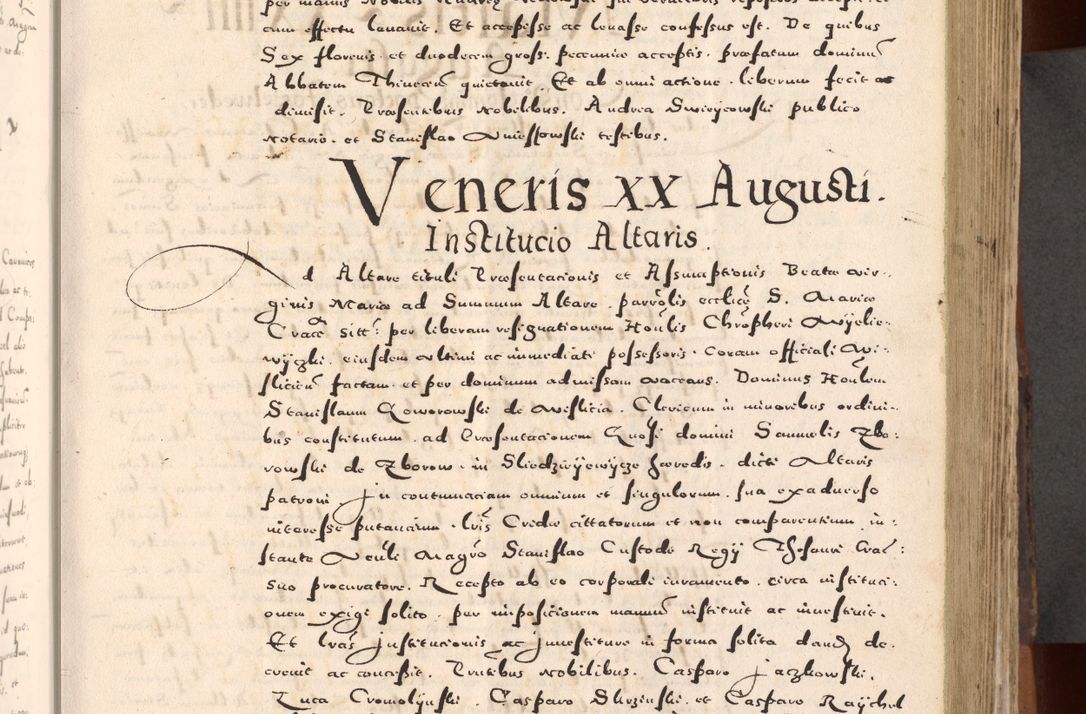 cum effectu lauauit. Et accepisse ac leuasse confessus est. De quibus
Sex florenis et duodecem gross: pecuniae acceptis. praefatum dominũ
Abbatem Thinecen̄ quictauit. Et ab omni actione liberum fecit ac
dimisit. Praesentibus Nobilibus. Andrea Swirycowski publico
notario. et Stanislao testibus.
Veneris XX Augusti.
Institucio Altaris.
d Altare tituli Praesentacionis et Assumptionis Beatae vir:
ginis Mariae ad Summum Altare. parrõlis ecclicę S. Mariae
Cracõ sitt: per liberam resignationem Honlis Chrõpheri Wyelie:
wyczki. eiusdem vltimi ac immediati possessoris. coram officiali Wi:
sliciẽn factam. et per dominum admissam vaccans. Dominus Honlem
Stanislaum Goworowski de Wislicia. Clericum in minoribus ordini:
bus constitutum. ad Praesentacionem Gnosi domini Samuelis Zbo:
rowski de Zborow. in haeredis. dicti Altaris
patroni In contumaciam omnium et singulorum. sua exaduerso
interesse putancium. lrĩs Credae cittatorum et non comparentium. in:
stante Magrõ Stanislao Custode Regij Thesauri Crac:
suo procuratore. Recepto ab eo corporali iuramento. circa instituci:
onem exigi solito. per imposicionem manuũ instituit ac inuestiuit.
Et lrãs institucionis ac inuestiturae in forma solita dand de:
creuit ac concessit. Prntibus Nobilibus. Casparo Jaczkowski.
Luca Cromolynski. Casparo Skrzinski. et Casparo Raychel